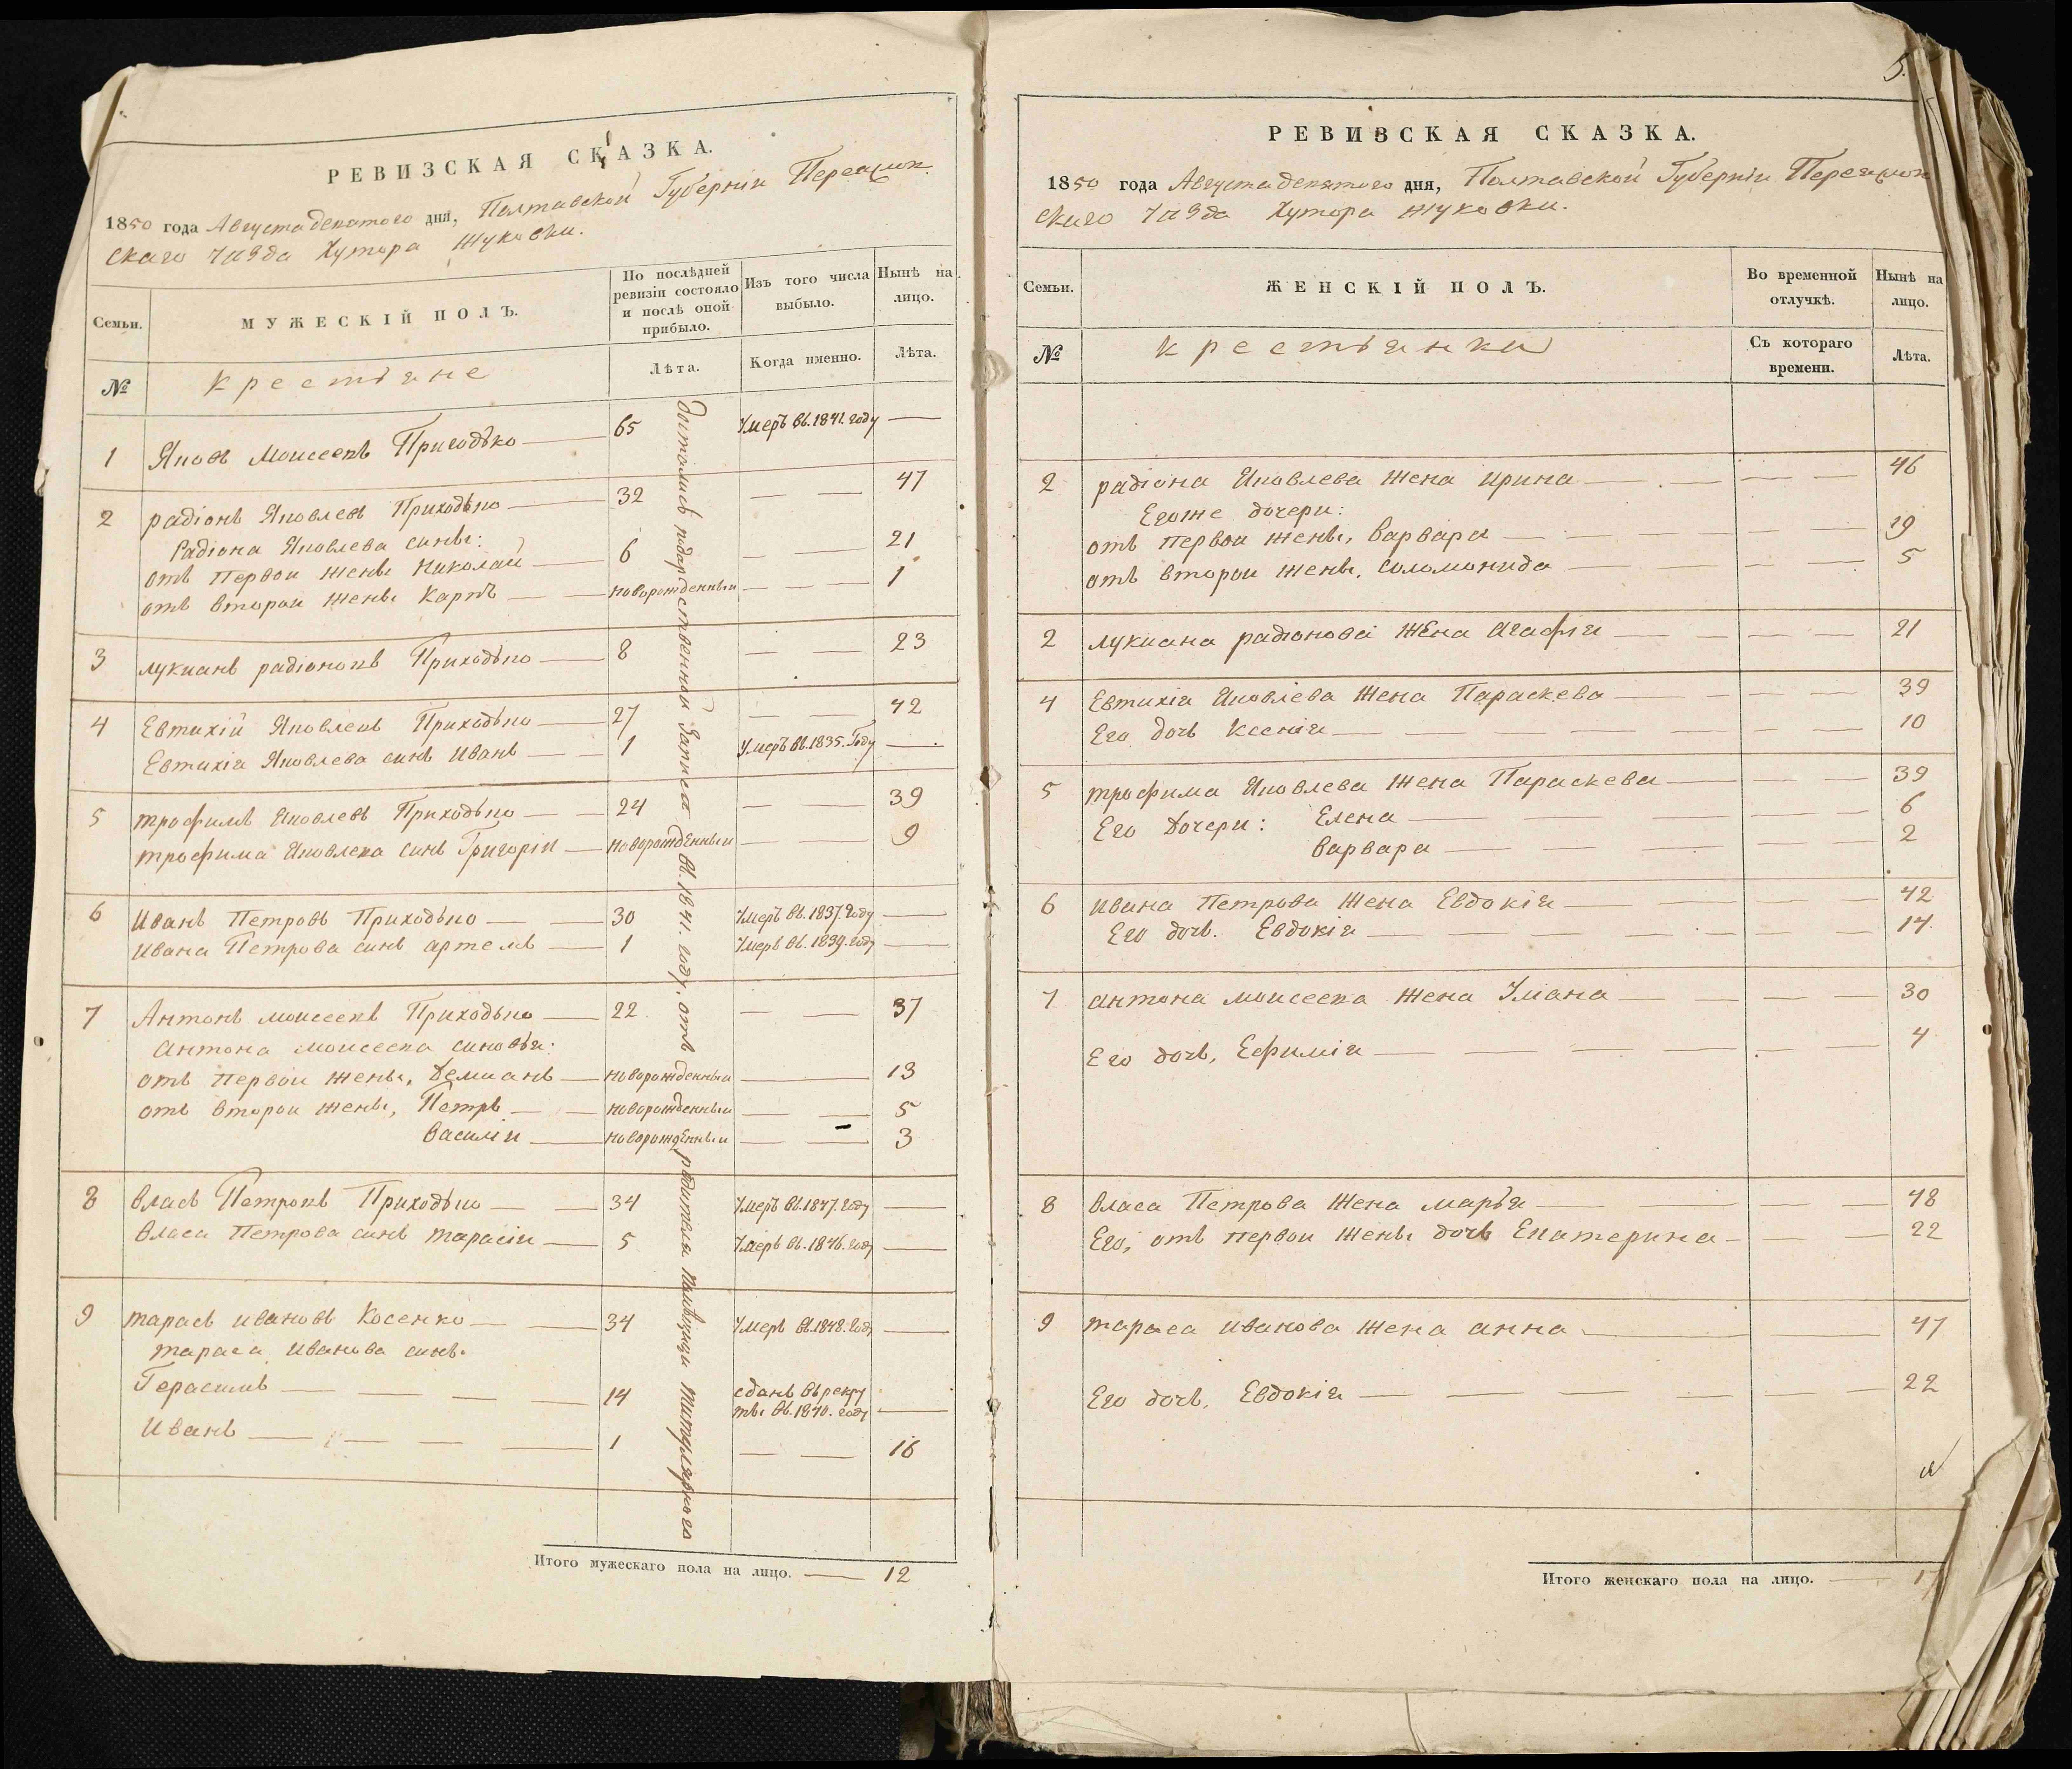 РЕВИЗСКАЯ СКАЗКА.
1850 года Августа девятого дня, Полтавской Губерніи Переяслов
скаго уѣзда Хутора Жуковки.
Семьи.
МУЖЕСКІЙ ПОЛЪ.
По послѣдней ревизіи состояло и послѣ оной прибыло.
Изъ того числа выбыло.
Нынѣ на лицо.
№
крестьяне
Лѣта.
Когда именно.
Лѣта.
1 Яковъ Моисеевъ Пригодько 65 Умеръ въ 1841. году
2 радіонъ Яковлевъ Приходько 32 47
Радіона Яковлева сины:
отъ первои жены Николай 6 21
отъ второи жены Карпъ новорожденныи 1
3 лукианъ радіоновъ Приходько 8 23
4 Евтихій Яковлевъ Приходько 27 42
Евтихія Яковлева синъ Иванъ 1 Умеръ въ. 1835. Году
5 трофимъ Яковлевъ Приходько 24 39
трофима Яковлева синъ Григоріи новорожденныи 9
6 Иванъ Петровъ Приходько 30 Умеръ въ. 1837. Году
Ивана Петрова синъ артемъ 1 Умеръ въ. 1839. году
7 Антонъ моисеевъ Приходько 22 37
Антона моисеева синовья:
отъ первои жены, Демианъ новорожденныи 13
отъ второи жены, Петръ новорожденныи 5
Василіи новорожденныи 3
8 Власъ Петровъ Приходько 34 Умеръ въ. 1847. году
Власа Петрова синъ тарасіи 5 Умеръ въ. 1846. году
9 тарасъ ивановъ Косенко 34 Умеръ въ. 1848. году
тараса Иванова сины.
Герасимъ 14 сданъ въ рекру
ты въ. 1840. году
Иванъ 1 16
достались подарственной Записи въ. 1841. году, отъ родителя помѣщици титулярнаго
Итого мужескаго пола на лицо. 12
5.
РЕВИЗСКАЯ СКАЗКА.
1850 года Августа девятого дня, Полтавской Губерніи Переяслов
скаго уѣзда Хутора жуковки.
Семьи.
ЖЕНСКІЙ ПОЛЪ.
Во временной отлучкѣ.
Нынѣ на лицо.
№
крестьянки
Съ котораго времени.
Лѣта.
2 радіона Яковлева жена ирина 46
Егоже дочери:
отъ первои жены, Варвара 19
отъ второи жены, Соломонида 5
2 лукиана радіонова жена Агафія 21
4 Евтихія Яковлева жена Параскева 39
Его дочь Ксенія 10
5 трофима Яковлева жена Параскева 39
Его Дочери: Елена 6
Варвара 2
6 ивана Петрова жена Евдокія 42
Его дочь. Евдокія 14
7 антона моисеева жена Уліана 30
Его дочь, Ефимія 4
8 власа Петрова жена марья 48
Его, отъ первои жены дочь Екатерина 22
9 тараса иванова жена анна 47
Его дочь, Евдокія 22
Итого женскаго пола на лицо.